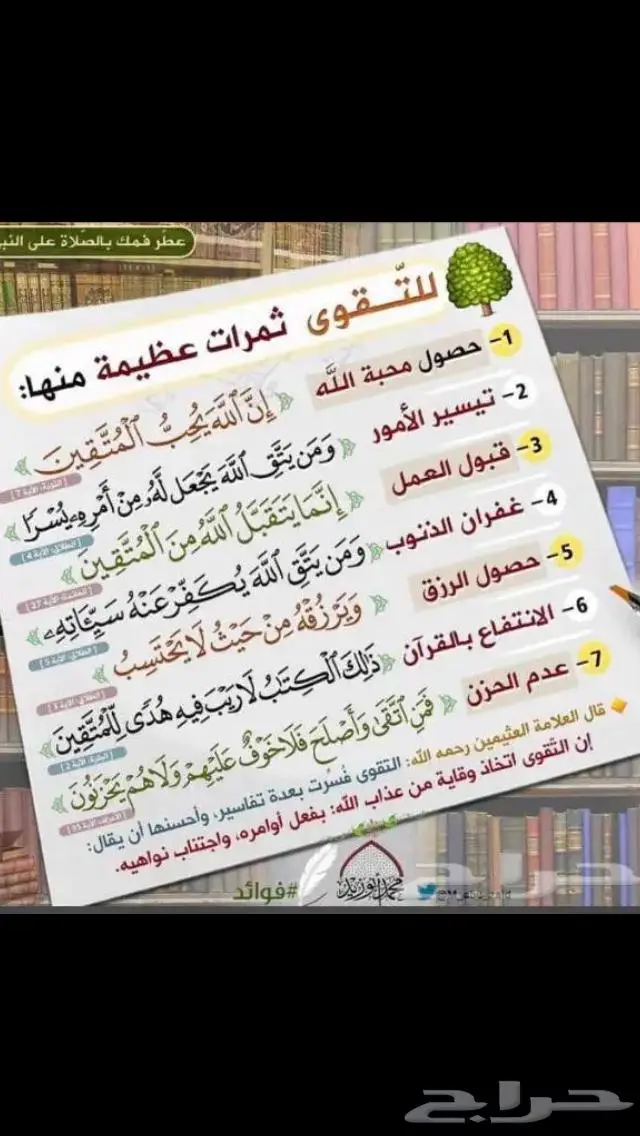 عطّر فمك بالصّلاة على النبي
للتّـقوى ثمرات عظيمة منها:
1- حصول محبة اللَّه
﴿إِنَّ ٱللَّهَ يُحِبُّ ٱلۡمُتَّقِينَ﴾
[التوبة، الآية 7]
2- تيسير الأمور
﴿وَمَن يَتَّقِ ٱللَّهَ يَجۡعَل لَّهُۥ مِنۡ أَمۡرِهِۦ يُسۡرًا﴾
[الطلاق، الآية 4]
3- قبول العمل
﴿إِنَّمَا يَتَقَبَّلُ ٱللَّهُ مِنَ ٱلۡمُتَّقِينَ﴾
[المائدة، الآية 27]
4- غفران الذنوب
﴿وَمَن يَتَّقِ ٱللَّهَ يُكَفِّرۡ عَنۡهُ سَيِّـَٔاتِهِۦ﴾
[الطلاق، الآية 5]
5- حصول الرزق
﴿وَيَرۡزُقۡهُ مِنۡ حَيۡثُ لَا يَحۡتَسِبُ﴾
[الطلاق، الآية 3]
6- الانتفاع بالقرآن
﴿ذَٰلِكَ ٱلۡكِتَٰبُ لَا رَيۡبَ فِيهِ هُدٗى لِّلۡمُتَّقِينَ﴾
[البقرة، الآية 2]
7- عدم الحزن
﴿فَمَنِ ٱتَّقَىٰ وَأَصۡلَحَ فَلَا خَوۡفٌ عَلَيۡهِمۡ وَلَا هُمۡ يَحۡزَنُونَ﴾
[الأعراف، الآية 35]
قال العلامة العثيمين رحمه الله: التقوى فُسرت بعدة تفاسير، وأحسنها أن يقال:
إن التّقوى اتخاذ وقاية من عذاب الله: بفعل أوامره، واجتناب نواهيه.
#فوائد
محمد أبو زيد
حراج
حراج